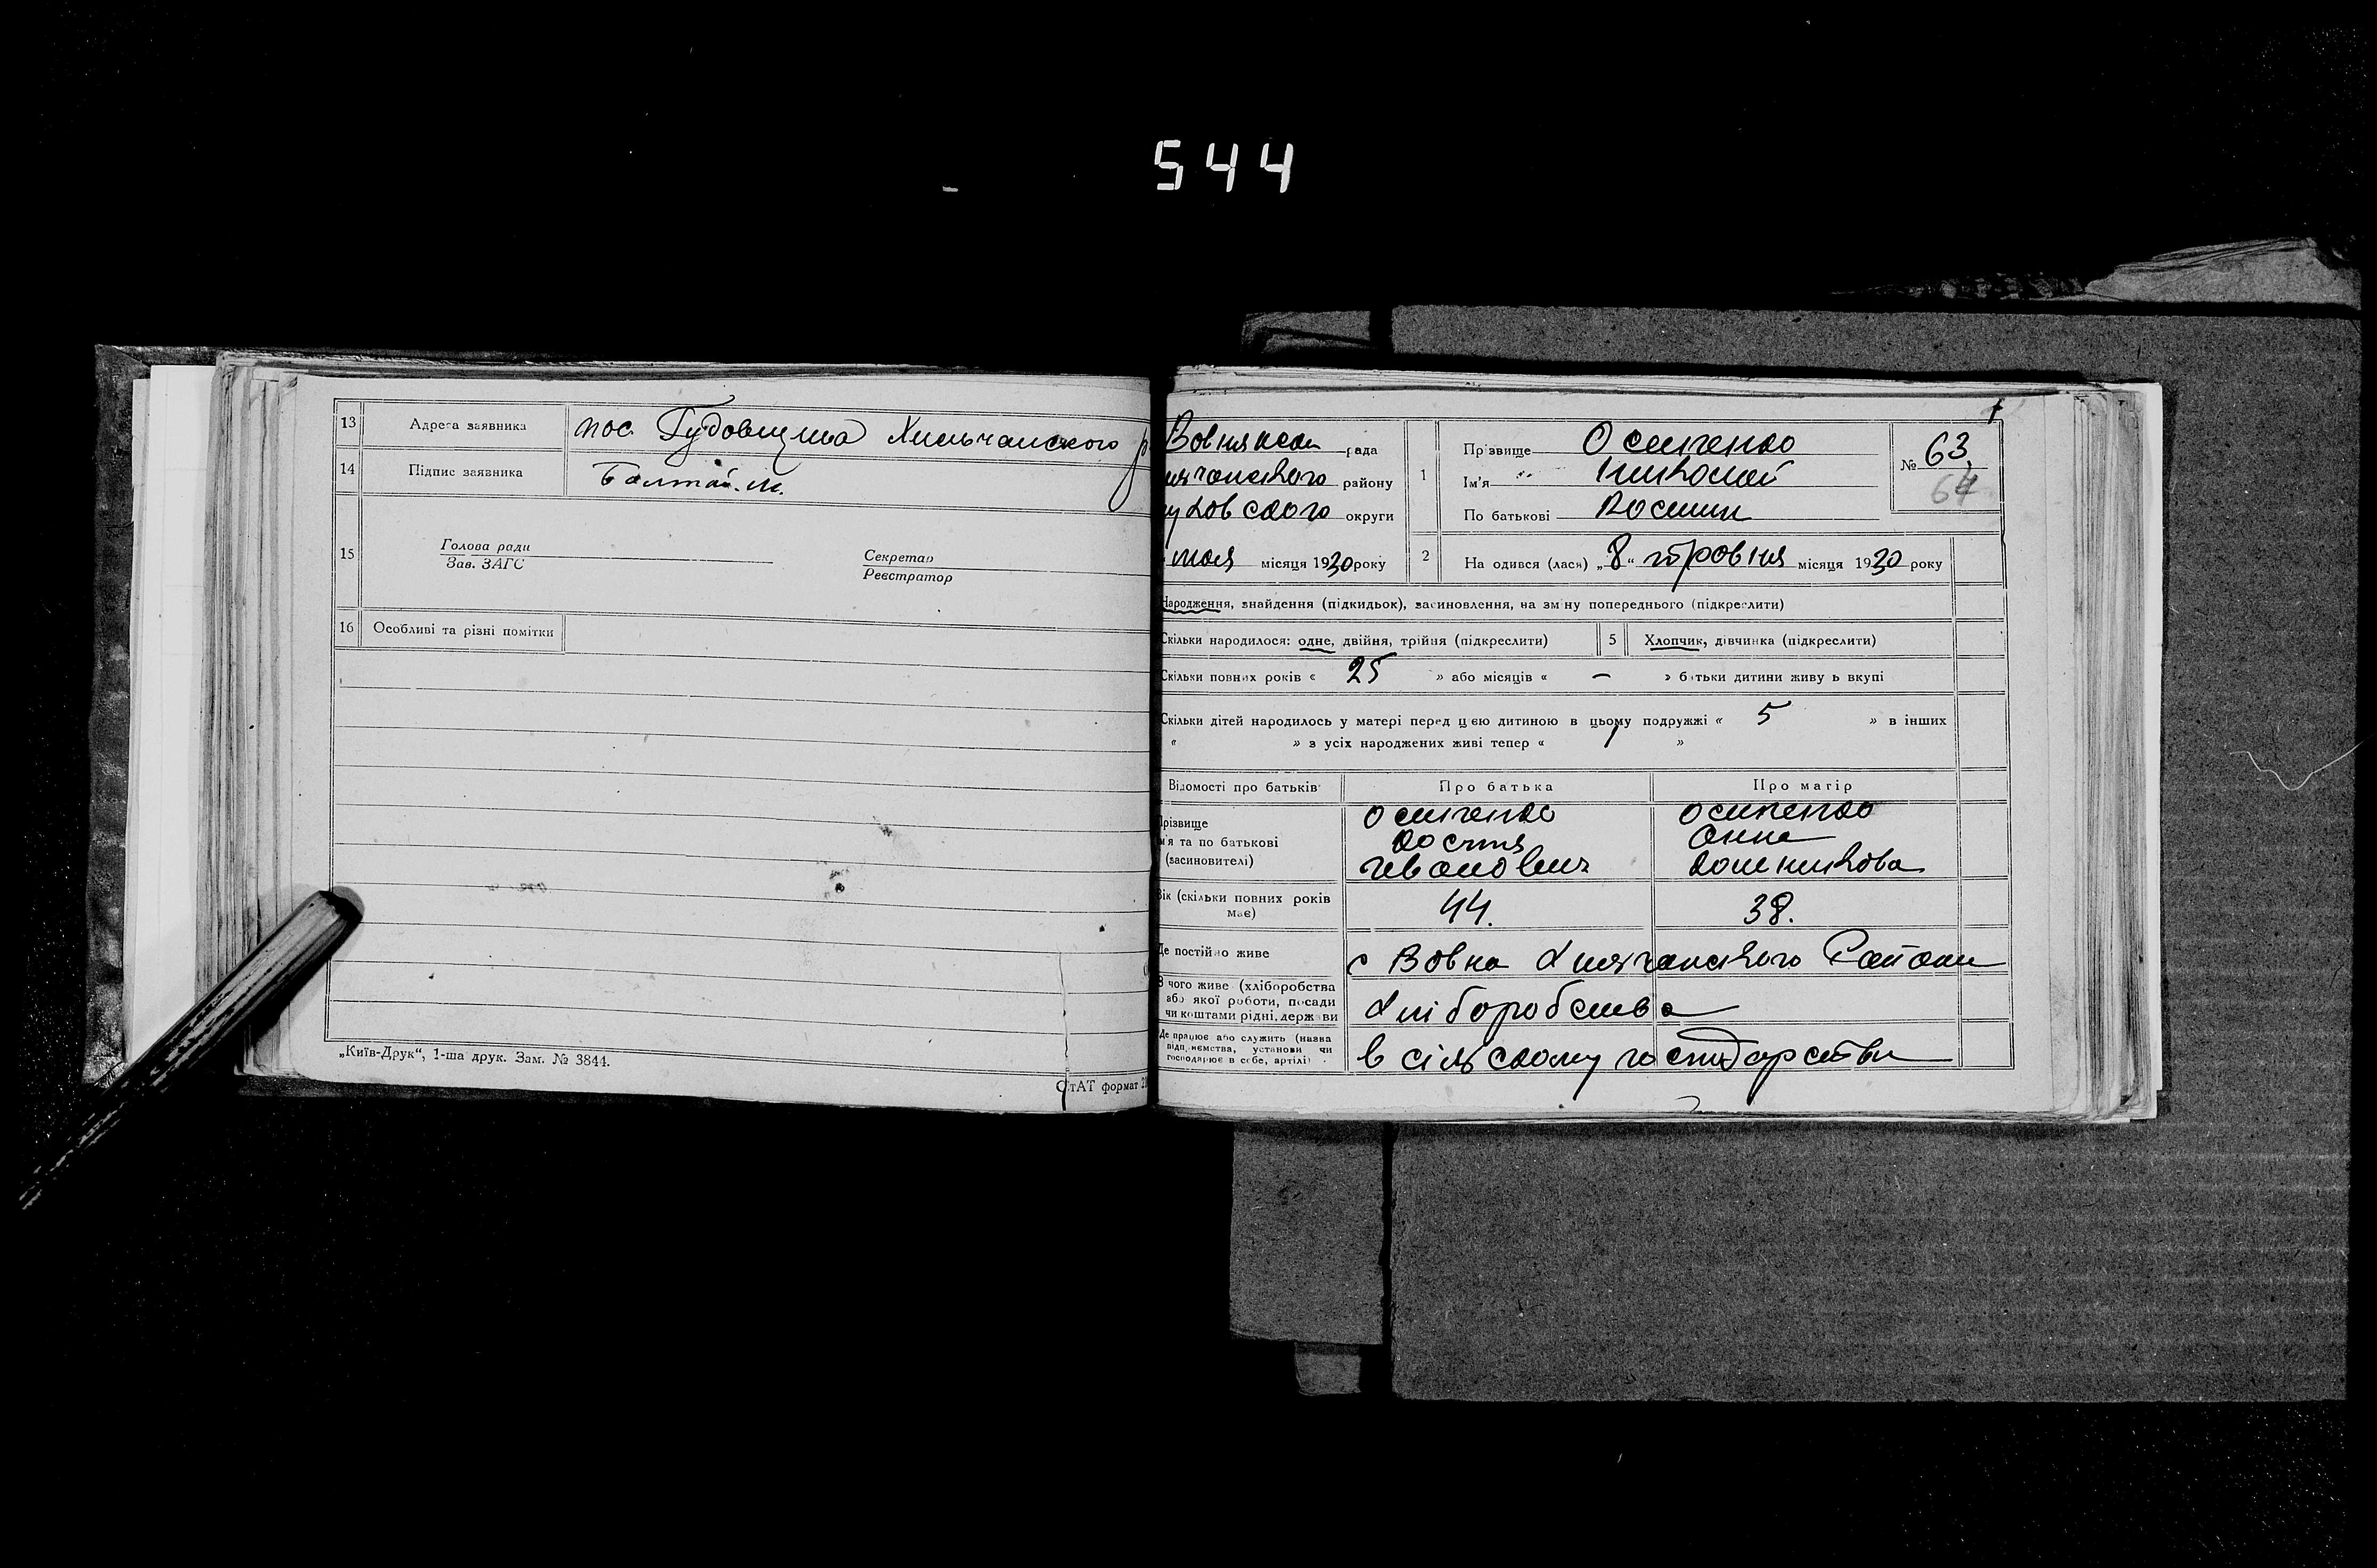 544
13 Адреса заявника пос. Гудовщина Хильчанского р
14 Підпис заявника Балтай. М.
15 Голова ради
Зав. ЗАГС
Секретар
Реєстратор
16 Особливі та різні помітки
„Київ-Друк“, 1-ша друк. Зам. № 3844.
СтАТ формат
рада
району
округи
мая місяця 1930 року
1 Прізвище Осипенко
Ім'я Николай
По батькові
№ 63
64
2 На одився (лася) „8“ травня місяця 1930 року
Народження, знайдення (підкидьок), засиновлення, на зміну попереднього (підкреслити)
Скільки народилося: одне, двійня, трійня (підкреслити) 5 Хлопчик, дівчинка (підкреслити)
Скільки повних років « 25 » або місяців « — » батьки дитини живу ь вкупі
Скільки дітей народилось у матері перед цією дитиною в цьому подружжі « 5 » в інших
« » з усіх народжених живі тепер « »
Відомості про батьків Про батька Про матір
Прізвище
ім'я та по батькові
(засиновителі)
Осипенко
Костя
Иванович
Осипенко
Анна
Вік (скільки повних років має) 44. 38.
Де постійно живе с Вовна Хильчанского Району
З чого живе (хліборобства
або якої роботи, посади
чи коштами рідні, держави
Хліборобства
Де працює або служить (назва
підприємства, установи чи
господарює в себе, артілі)
в сільському господарстві